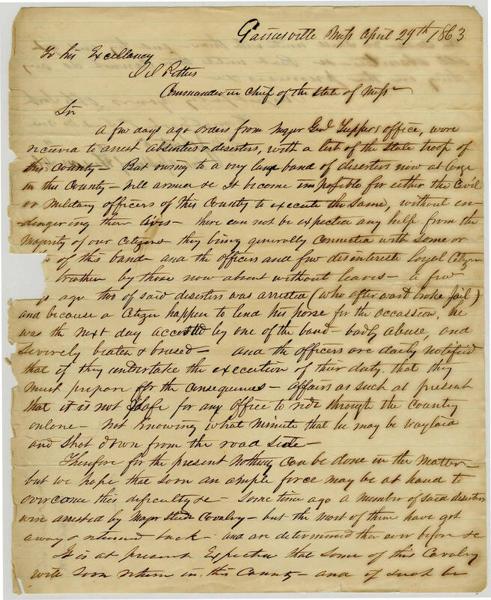 Gainesville Miss April 29th 1863
To his Excellancy
J J Pettus
Commander in Chief of the state of Miss
Sir
A few days ago orders from Major Genl Tuppers office, were
recieved to arrest absentees & deserters, with a list of the state troop of
this County – But owing to a very large band of deserters now at large
in the County – well armed &c It become impossible for either the Civil
or Military officers of this County to execute the same, without en-
dangering their lives – there can not be expected any help from the
Majority of our Citizens they being generally connected with some or
of this band – and the officers and few desinterested loyal Citizens
by those now absent without leave – a few
ago two of said deserters was arrested (who afterward broke jail)
and because a Citizen happen to lend his horse for the occassion, he
was the next day accosted by one of the band – badly abuse, and
severely beaten & brused – and the officers are daily notified
that if they undertake the execution of their duty, that they
must prepare for the consequences – affairs as such at present
that it is not safe for any officer to ride through the County
onlone – Not knowing what minute that he may be waylaid
and Shot down from the road side –
Therefore for the present Nothing can be done in the Matter
but we hope that soon an ample force may be at hand to
overcome this dificulty &c – Some time ago a number of said deserters
were arrested by Major Steede Cavalry – but the most of them have got
away & returned back – and are determined than ever before &c
It is at present Expected that some of this Cavalry
will soon return in this County – and if such be